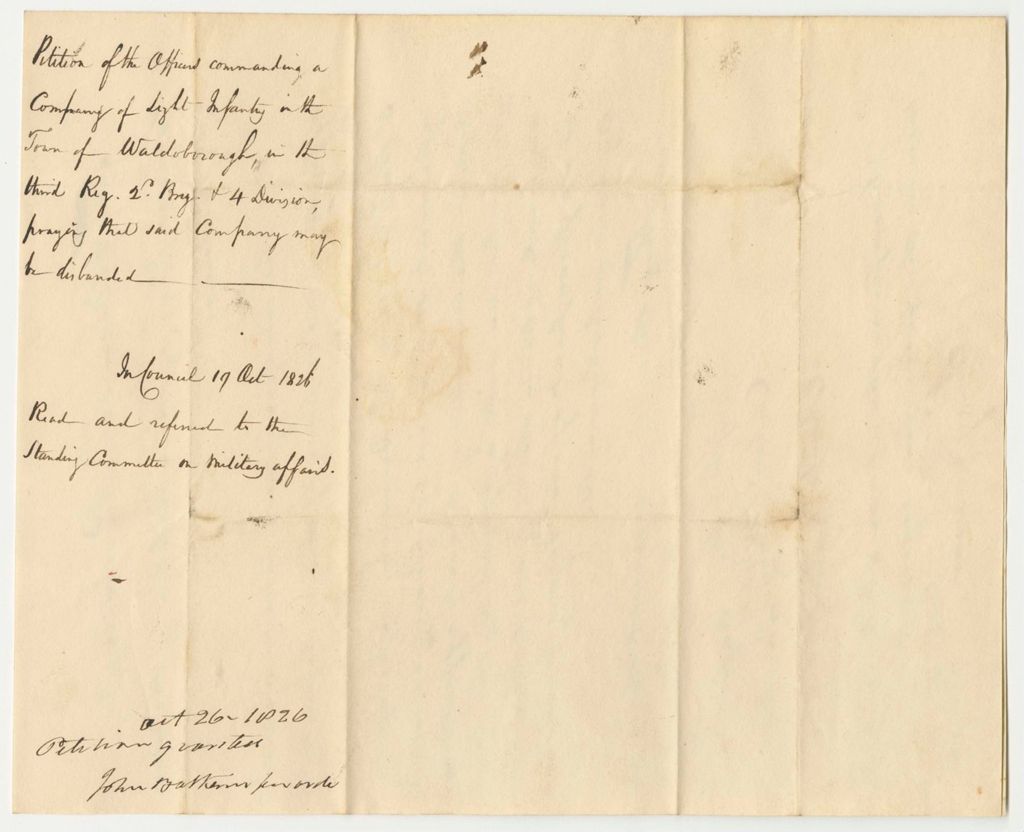 Petition of the Officers commanding a
Company of Light Infantry in the
Town of Waldoborough, in the
third Reg. 2d. Brig. & 4 Division,
praying that said Company may
be disbanded
In Council 19 Oct 1826
Read and referred to the
Standing Committee on Military affairs.
oct 26 1826
Petition granted
John per order